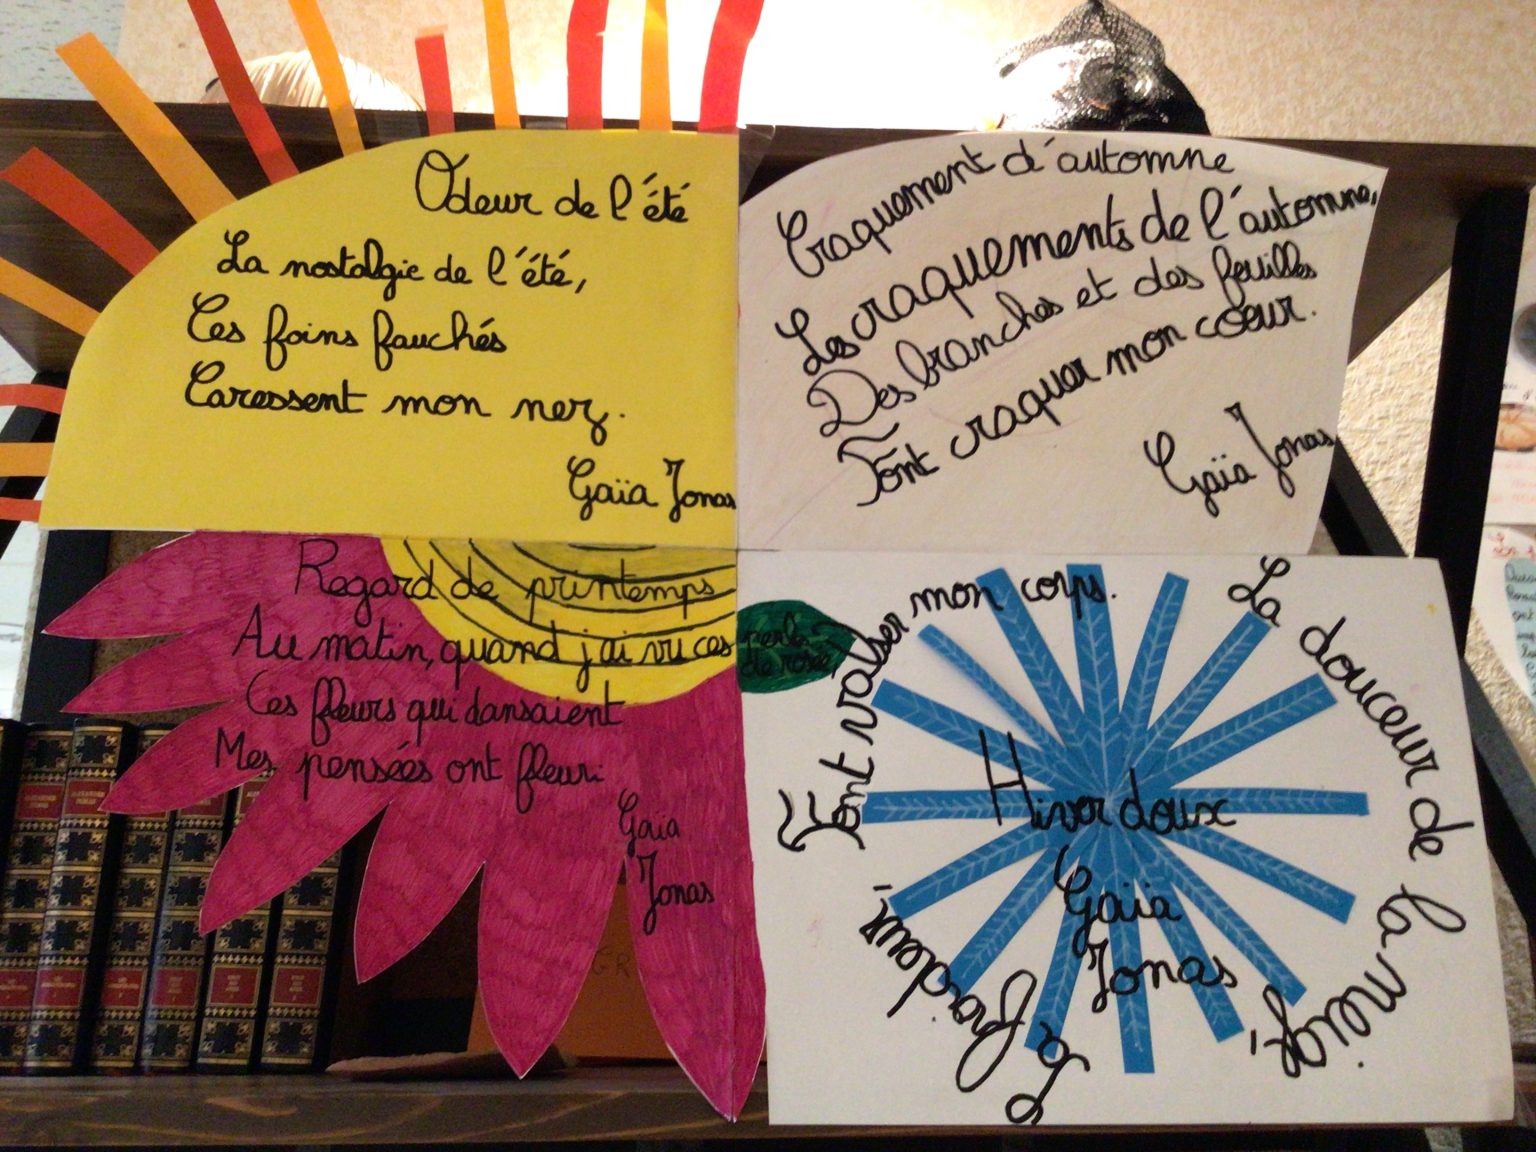 Odeur de l'été
La nostalgie de l'été,
Ces foins fauchés
Caressent mon nez.
Gaïa Jonas
Craquement d'automne
Les craquements de l'automne,
Des branches et des feuilles
Font craquer mon cœur.
Gaïa Jonas
Regard de printemps
Au matin, quand j'ai vu ces
perles
de rosée
Ces fleurs qui dansaient
Mes pensées ont fleuri
Gaïa
Jonas
Hiver doux
Gaïa
Jonas
La douceur de la neige,
La froideur,
Font valser mon corps.
GR